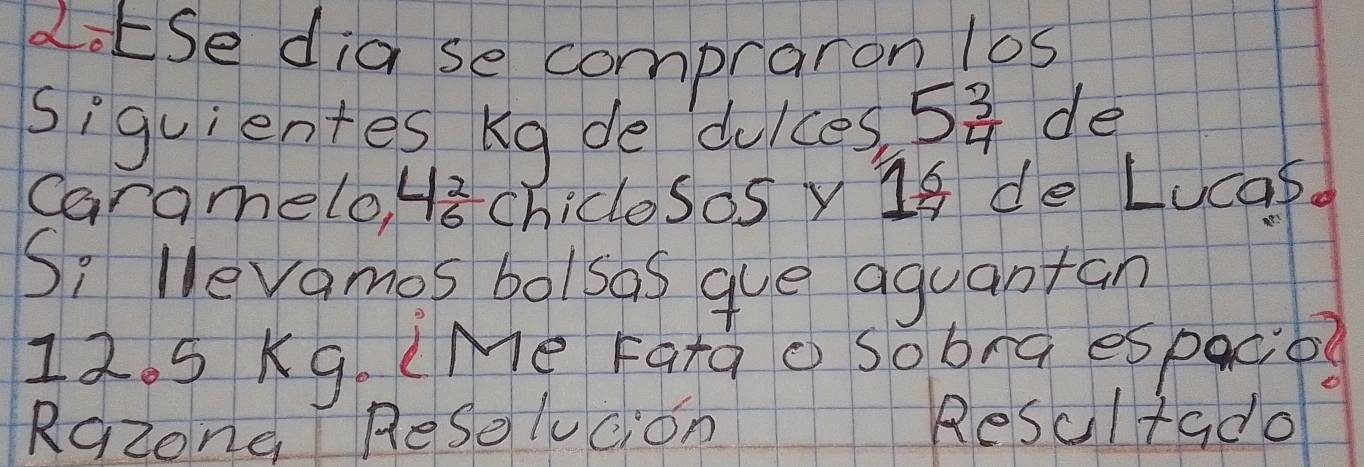 2.-Ese dia se compraron los
Siguientes Kg de dulces, 5 3/4 de
Caramelo, 4 2/6 chiclosos y 1 6/7 de Lucas.
Si llevamos bolsas que aguantan
12.5 Kg. ¿Me Fata o sobra espacio?
Razona Resolución Resultado